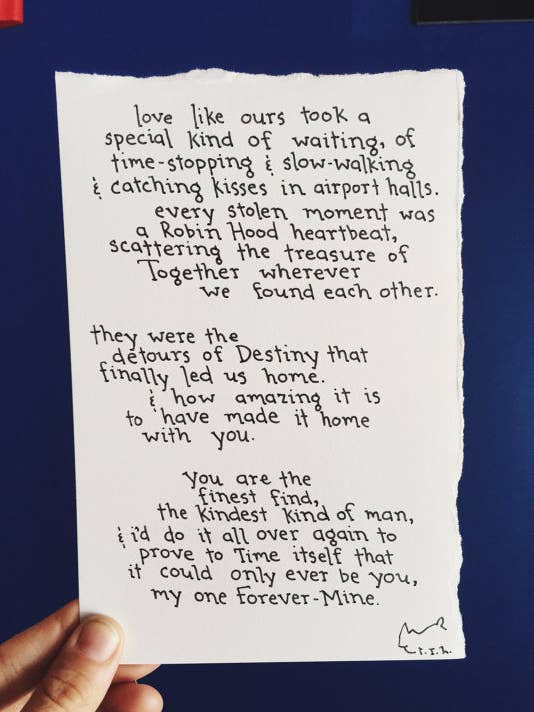 love like ours took a
special kind of waiting, of
time-stopping & slow-walking
& catching kisses in airport halls.
every stolen moment was
a Robin Hood heartbeat,
scattering the treasure of
Together wherever
we found each other.
they were the
detours of Destiny that
finally led us home.
& how amazing it is
to have made it home
with you.
you are the
finest find,
the kindest kind of man,
& i'd do it all over again to
prove to Time itself that
it could only ever be you,
my one Forever-Mine.